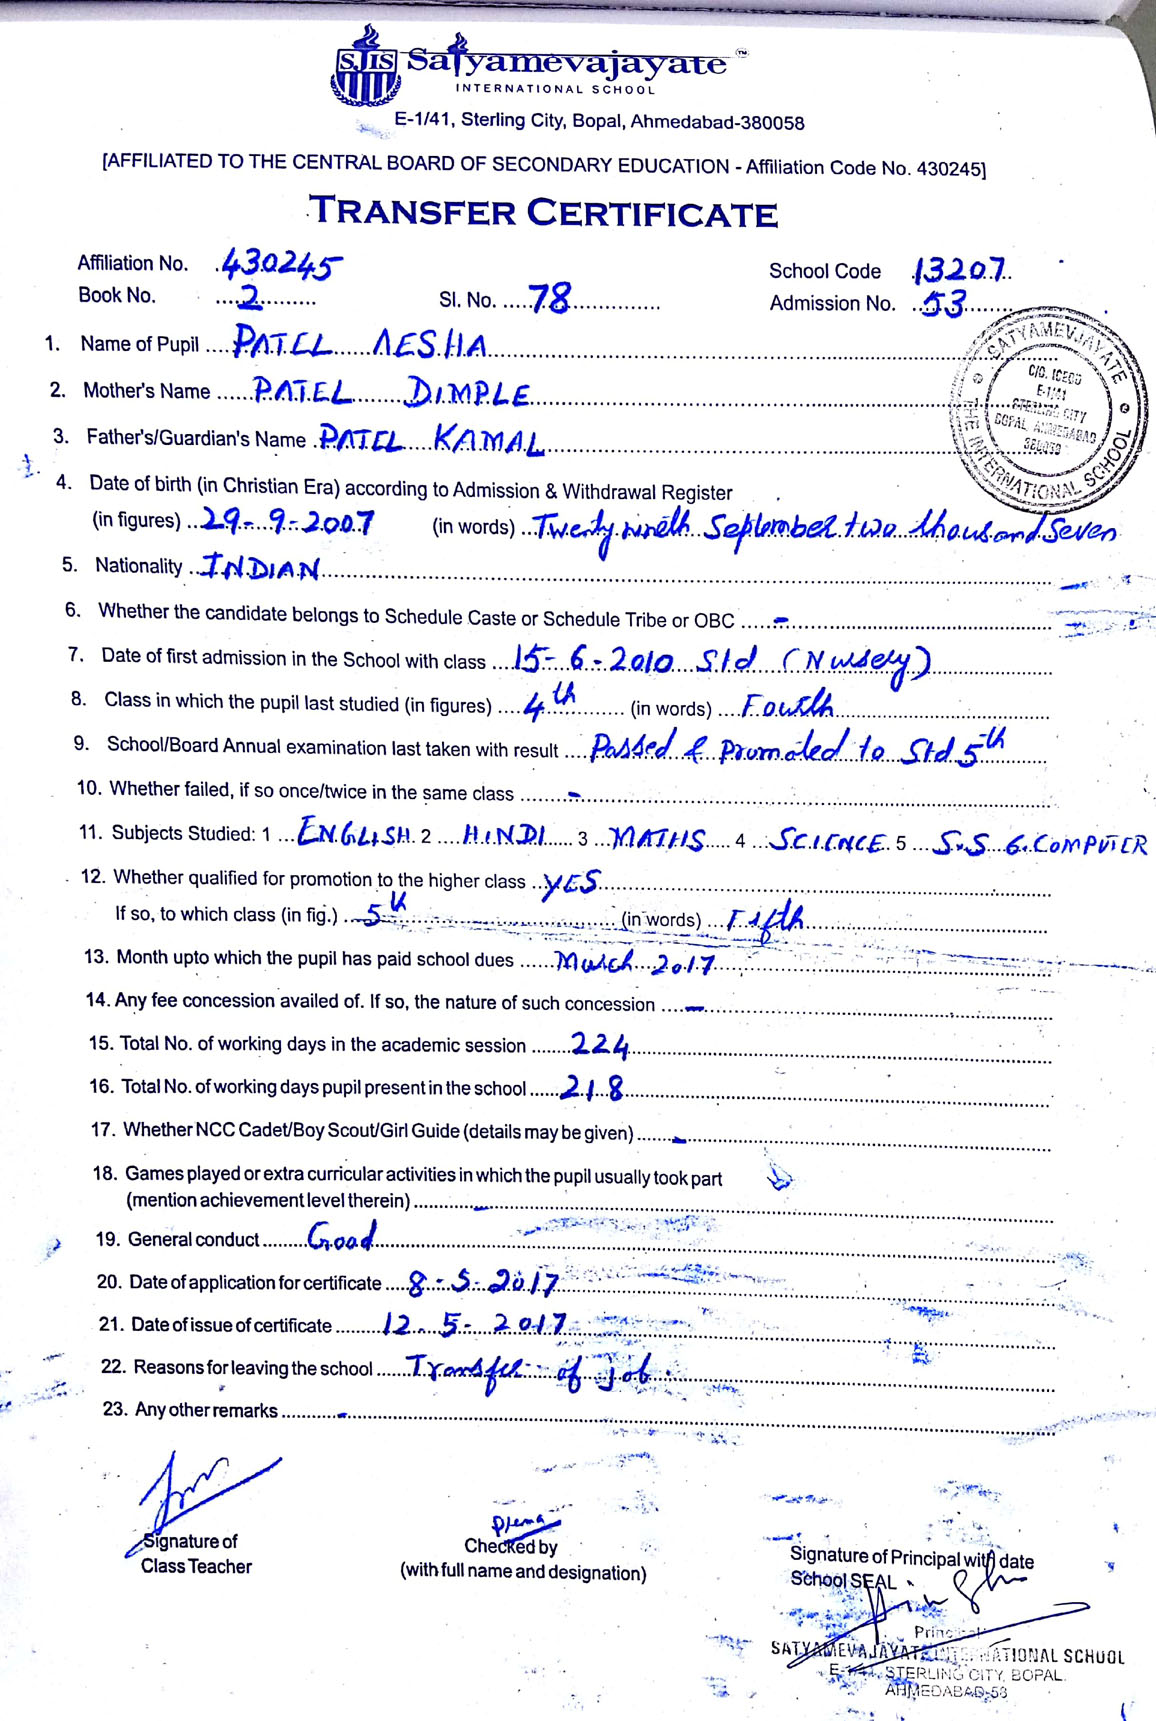 SJIS Satyamevajayate ™
INTERNATIONAL SCHOOL
E-1/41, Sterling City, Bopal, Ahmedabad-380058
[AFFILIATED TO THE CENTRAL BOARD OF SECONDARY EDUCATION - Affiliation Code No. 430245]
TRANSFER CERTIFICATE
Affiliation No. 430245 School Code 13207
Book No. 2 Sl. No. 78 Admission No. 53
1. Name of Pupil PATEL AESHA
2. Mother's Name PATEL DIMPLE
3. Father's/Guardian's Name PATEL KAMAL
SATYAMEVJAYATE THE INTERNATIONAL SCHOOL
C/O. ICERD
E-1/41
STERLING CITY
BOPAL AHMEDABAD
380058
4. Date of birth (in Christian Era) according to Admission & Withdrawal Register
(in figures) 29-9-2007 (in words) Twenty nineth September two thousand seven
5. Nationality INDIAN
6. Whether the candidate belongs to Schedule Caste or Schedule Tribe or OBC -
7. Date of first admission in the School with class 15-6-2010 Std (Nursery)
8. Class in which the pupil last studied (in figures) 4th (in words) Fourth
9. School/Board Annual examination last taken with result Passed & Promoted to Std 5th
10. Whether failed, if so once/twice in the same class -
11. Subjects Studied: 1 ENGLISH 2 HINDI 3 MATHS 4 SCIENCE 5 S.S 6. COMPUTER
12. Whether qualified for promotion to the higher class YES
If so, to which class (in fig.) 5th (in words) Fifth
13. Month upto which the pupil has paid school dues March 2017
14. Any fee concession availed of. If so, the nature of such concession -
15. Total No. of working days in the academic session 224
16. Total No. of working days pupil present in the school 218
17. Whether NCC Cadet/Boy Scout/Girl Guide (details may be given) -
18. Games played or extra curricular activities in which the pupil usually took part
(mention achievement level therein) -
19. General conduct Good
20. Date of application for certificate 8-5-2017
21. Date of issue of certificate 12.5-2017
22. Reasons for leaving the school Transfer of job.
23. Any other remarks -
Prema
Signature of Checked by Signature of Principal with date
Class Teacher (with full name and designation) School SEAL
Principal
SATYAMEVAJAYATE INTERNATIONAL SCHOOL
E-1/41, STERLING CITY, BOPAL,
AHMEDABAD-58